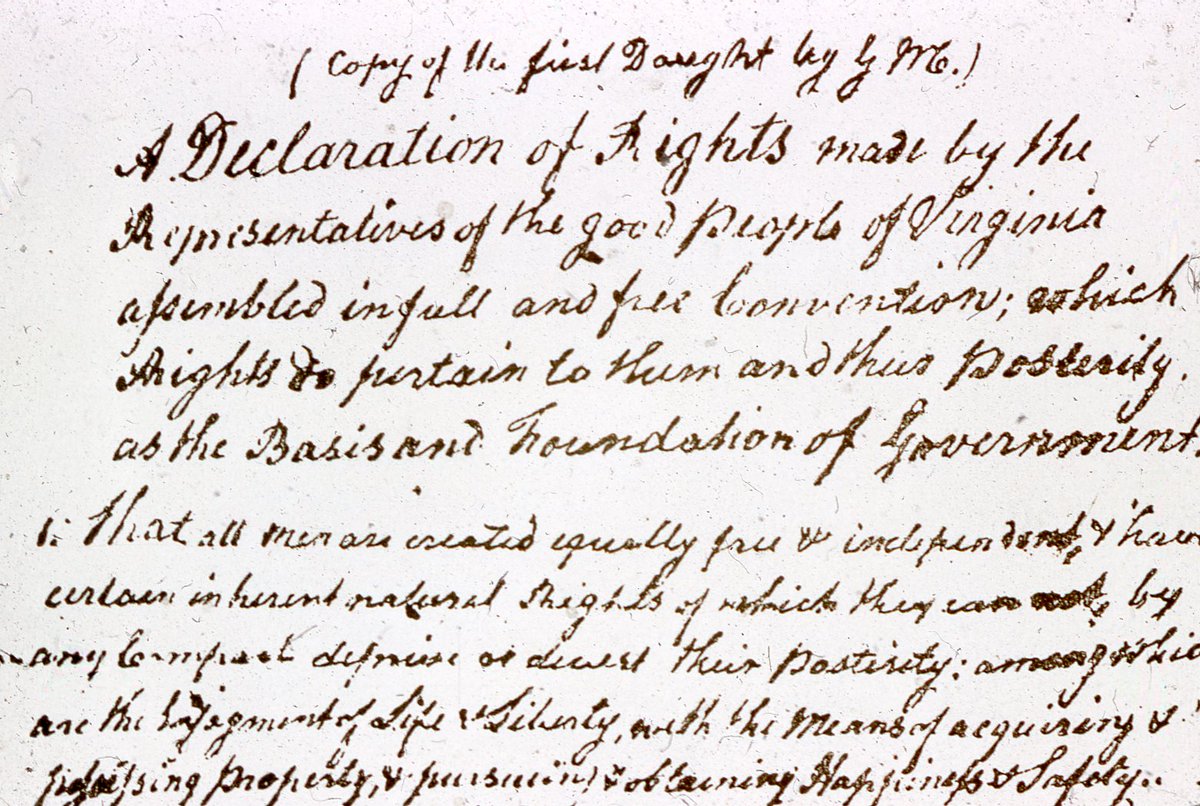 (Copy of the first Daught by G M.)
A Declaration of Rights made by the
Representatives of the good People of Virginia
assembled in full and free Convention; which
Rights do pertain to them and their Posterity,
as the Basis and Foundation of Government.
1. That all Men are created equally free & independent, & have
certain inherent natural Rights, of which they can not, by
any Compact deprive or devest their Posterity: among which
are the Enjoyment of Life & Liberty, with the Means of acquiring &
possessing Property, & pursuing & obtaining Happiness & Safety.